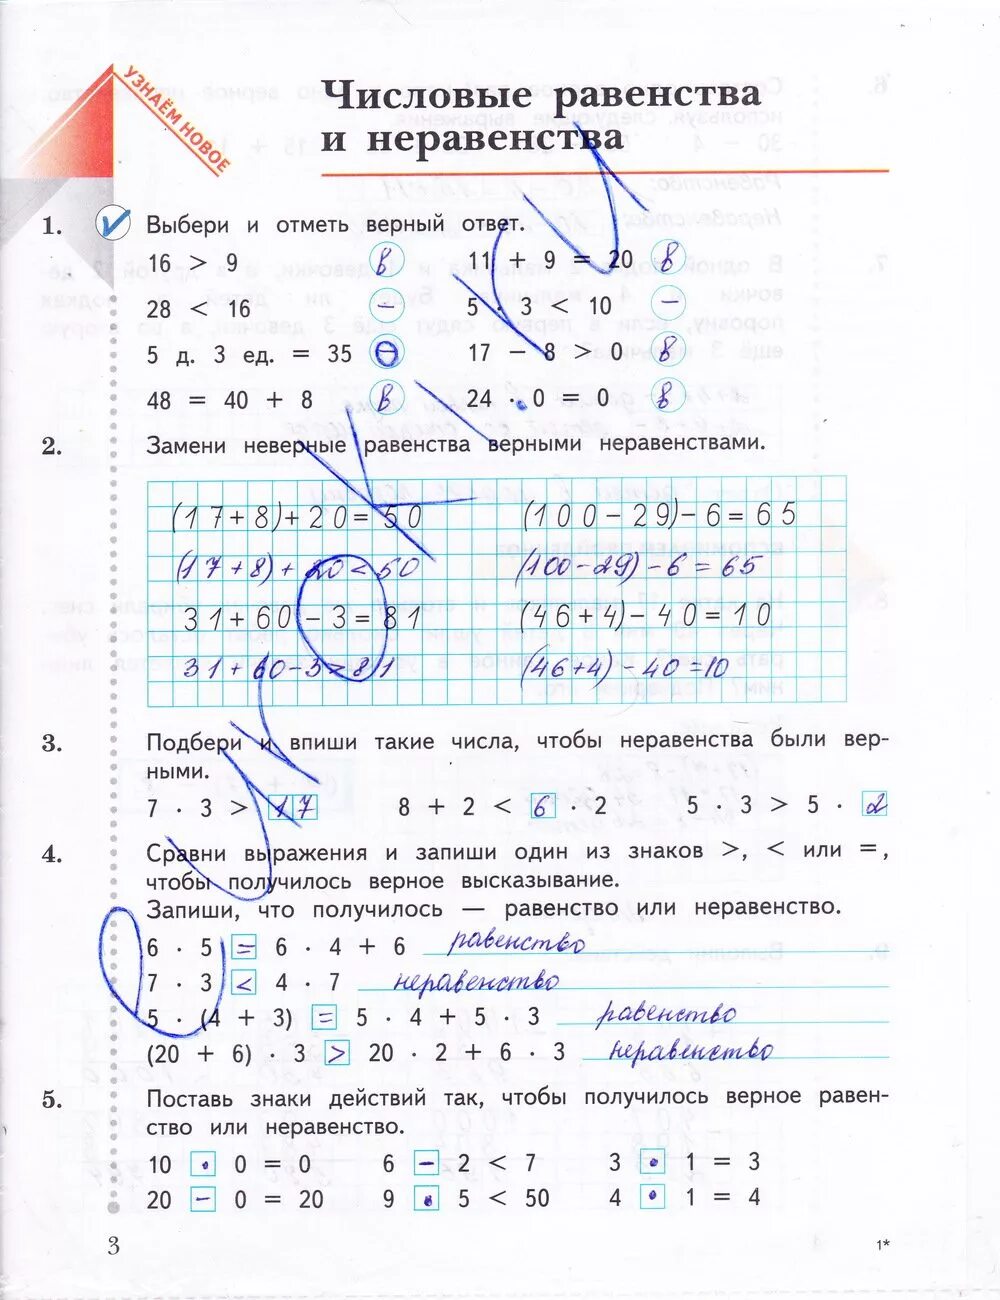 УЗНАЁМ НОВОЕ
Числовые равенства
и неравенства
1. Выбери и отметь верный ответ.
16 > 9 в 11 + 9 = 20 в
28 < 16 − 5 · 3 < 10 −
5 д. 3 ед. = 35 − 17 − 8 > 0 в
48 = 40 + 8 в 24 · 0 = 0 в
2. Замени неверные равенства верными неравенствами.
(17+8)+20=50 (100−29)−6=65
(17+8)+20<50 (100−29)−6=65
31+60−3=81 (46+4)−40=10
31+60−3>81 (46+4)−40=10
3. Подбери и впиши такие числа, чтобы неравенства были вер-
ными.
7 · 3 > 17 8 + 2 < 6 · 2 5 · 3 > 5 · 2
4. Сравни выражения и запиши один из знаков >, < или =,
чтобы получилось верное высказывание.
Запиши, что получилось — равенство или неравенство.
6 · 5 = 6 · 4 + 6 равенство
7 · 3 < 4 · 7 неравенство
5 · (4 + 3) = 5 · 4 + 5 · 3 равенство
(20 + 6) · 3 > 20 · 2 + 6 · 3 неравенство
5. Поставь знаки действий так, чтобы получилось верное равен-
ство или неравенство.
10 · 0 = 0 6 − 2 < 7 3 · 1 = 3
20 − 0 = 20 9 · 5 < 50 4 · 1 = 4
3 1*